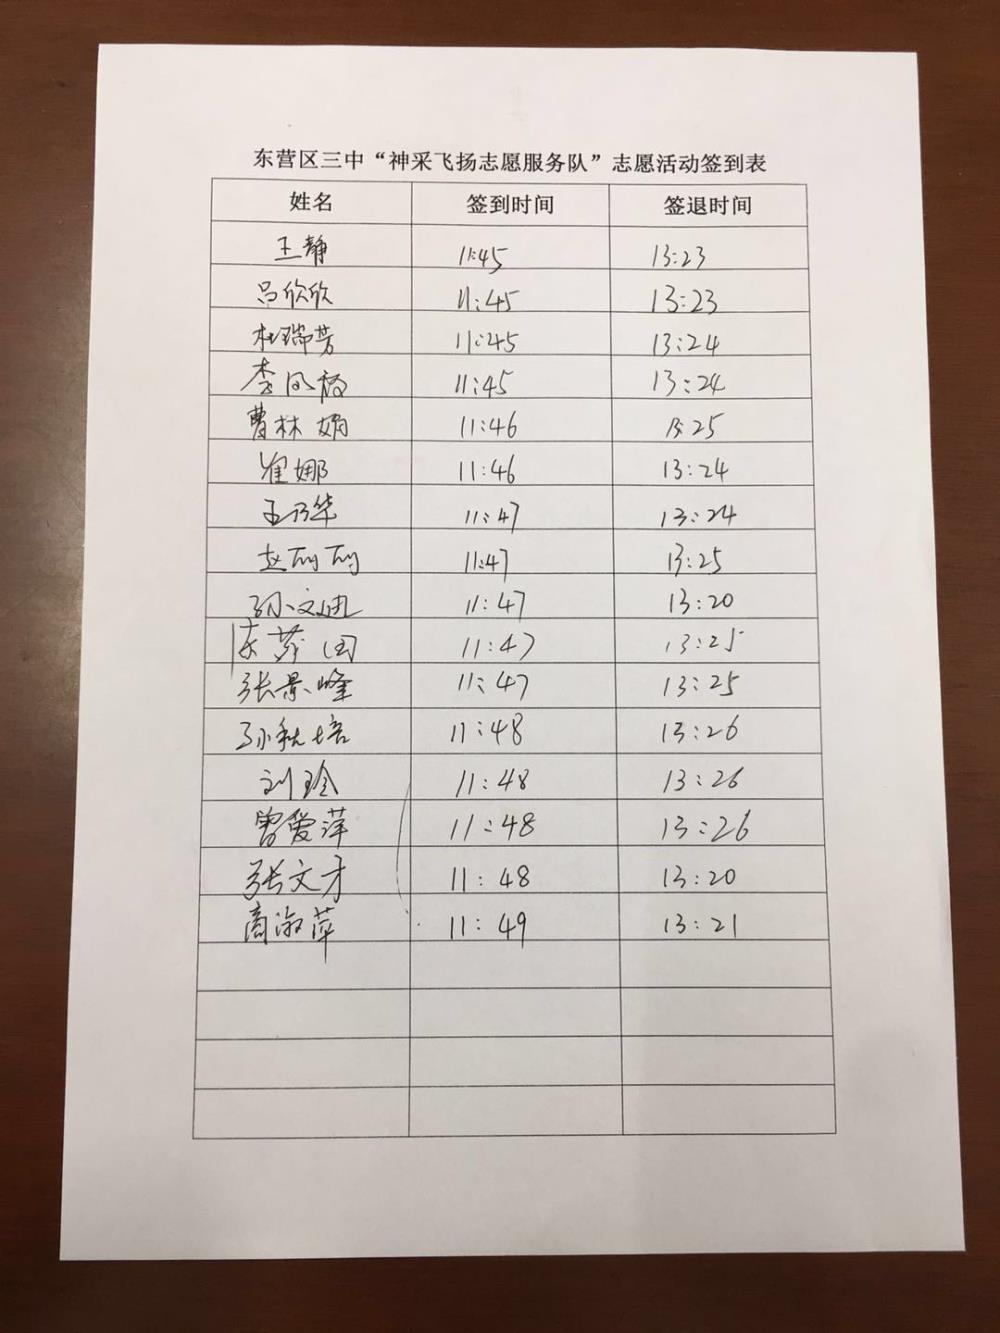 东营区三中“神采飞扬志愿服务队”志愿活动签到表
姓名 签到时间 签退时间
王静 11:45 13:23
吕欣欣 11:45 13:23
杜瑞芳 11:45 13:24
李凤 11:45 13:24
曹林娟 11:46 13:25
崔娜 11:46 13:24
王乃华 11:47 13:24
赵丽丽 11:47 13:25
孙文迪 11:47 13:20
11:47 13:25
张景峰 11:47 13:25
孙秋培 11:48 13:26
刘玲 11:48 13:26
曾爱萍 11:48 13:26
张文才 11:48 13:20
商淑萍 11:49 13:21